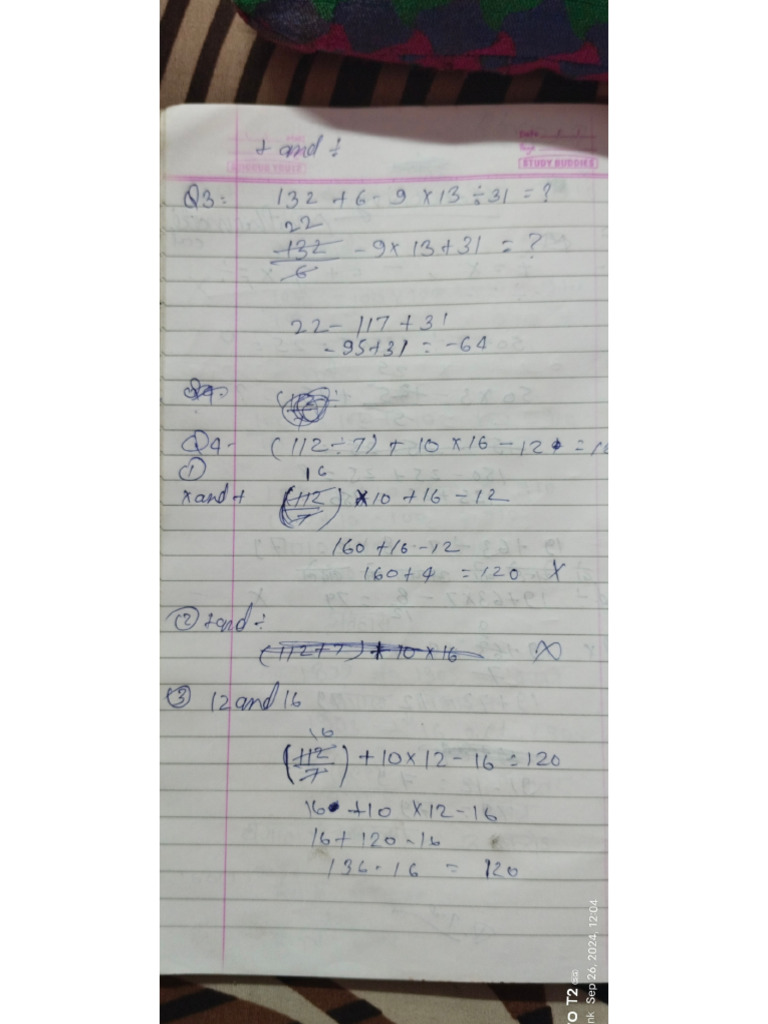 + and ÷
STUDY BUDDIES
Q3: 132 + 6 - 9 × 13 ÷ 31 = ?
22
132 - 9 × 13 + 31 = ?
6
22 - 117 + 31
- 95 + 31 = -64
Q4- (112 ÷ 7) + 10 × 16 - 12 = 1
① 16
× and + (112) × 10 + 16 - 12
7
160 + 16 - 12
160 + 4 = 120 X
② + and ÷
(112 + 7) + 10 × 16 X
③ 12 and 16
16
(112) + 10 × 12 - 16 = 120
7
16 + 10 × 12 - 16
16 + 120 - 16
136 - 16 = 120
T2
Sep 26, 2024, 12:04